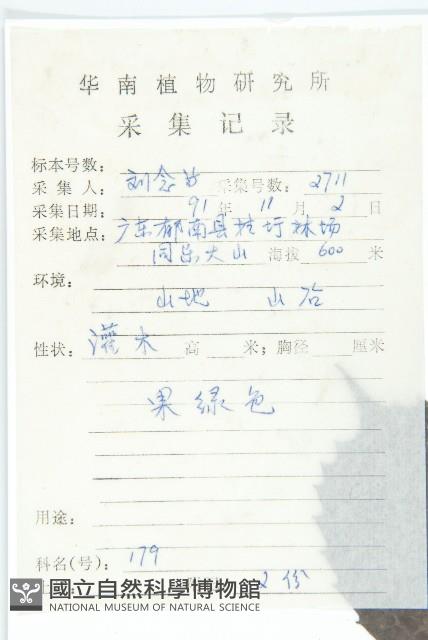 华南植物研究所
采集记录
标本号数:
采集人: 刘念 采集号数: 2711
采集日期: 91年11月2日
采集地点: 广东郁南县桂圩林场
同乐大山 海拔600米
环境:
山地 山谷
性状: 灌木 高 米; 胸径 厘米
果绿色
用途:
科名(号): 179
2份
國立自然科學博物館
NATIONAL MUSEUM OF NATURAL SCIENCE